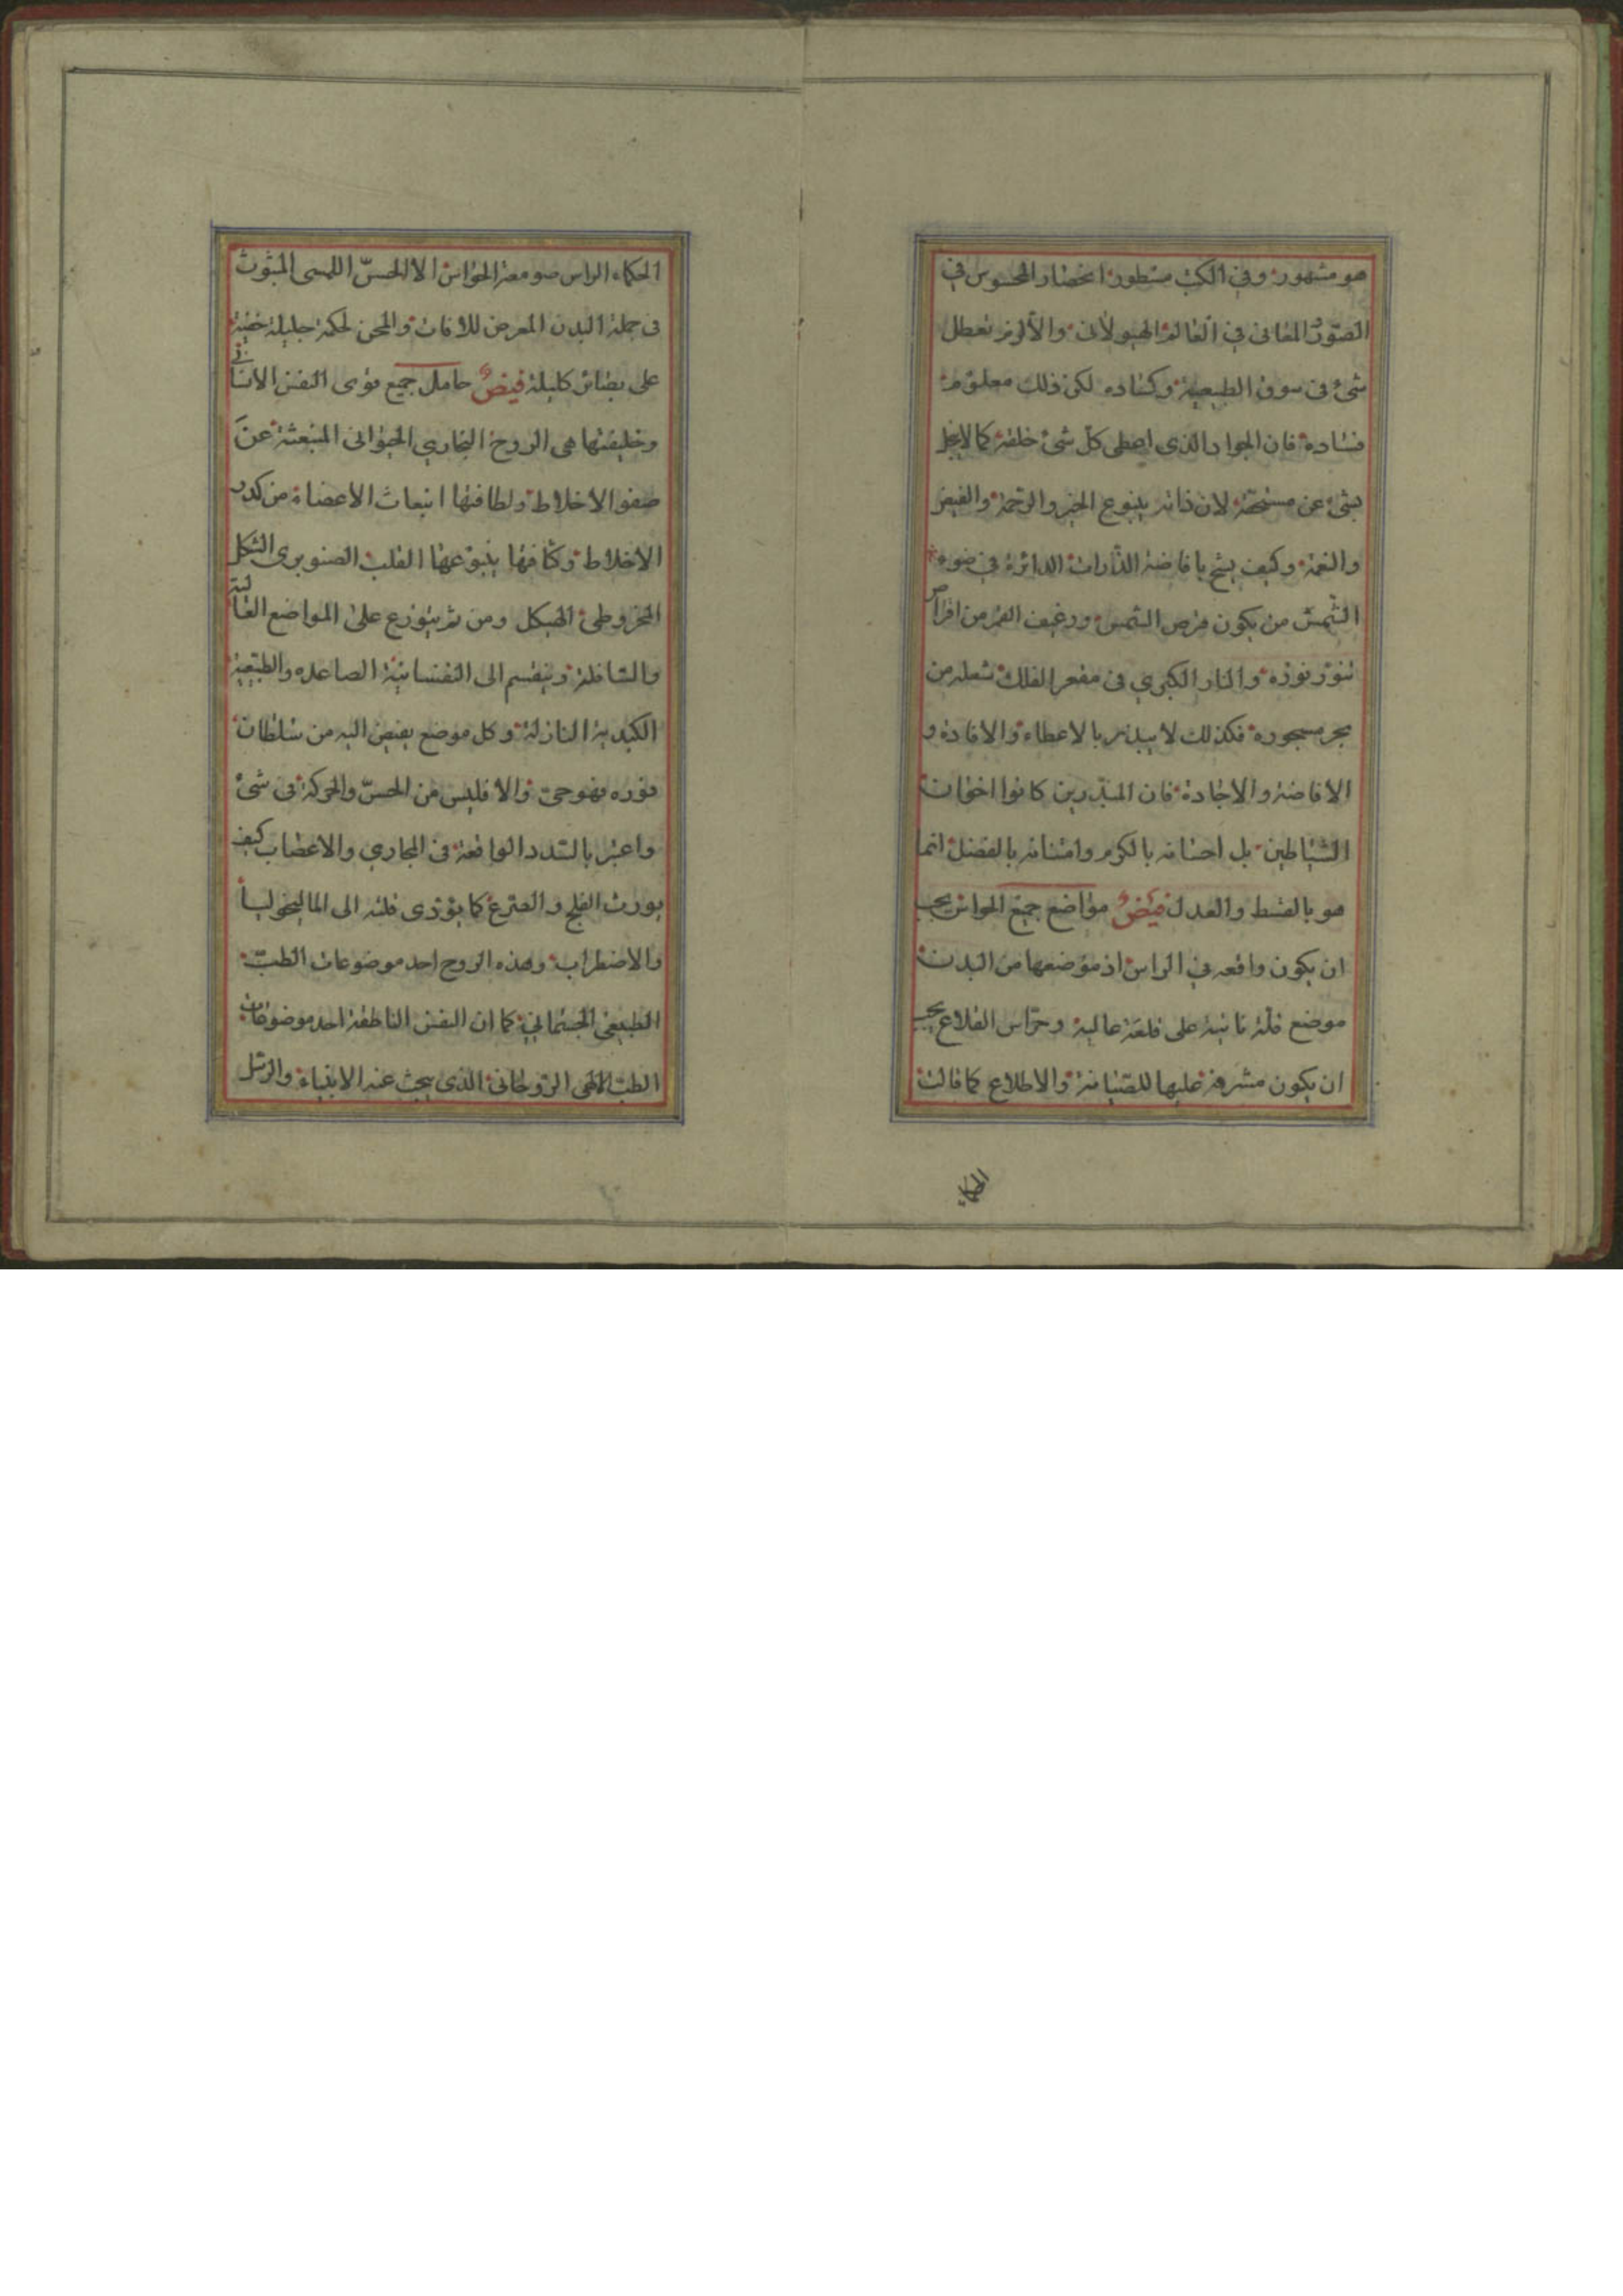 هو مشهور وفي الكتب مسطور انحصار المحسوس في
الصور والمعاني في العالم الهيولاني والا لزم تعطل
شئ في سوق الطبيعة وكساده لكن ذلك معلوم
فساده فان الجواد الذي اعطى كل شئ خلقه كما لا يبخل
بشئ عن مستحقه لان ذاته ينبوع الخير والرحمة والفيض
والنعمة وكيف يشح بافاضة الذرات الدائرة في ضوء
الشمس من يكون قرص الشمس ورغيف القمر من اقراص
تنور نوره والنار الكبرى في مقعر الفلك شعلة من
بحر مسجوره فكذلك لا يبذر بالاعطاء والافادة و
الافاضة والاجادة فان المبذرين كانوا اخوان
الشياطين بل احسانه بالكرم وامتنانه بالفضل انما
هو بالقسط والعدل فيض مواضع جميع الحواس يجب
ان يكون واقعه في الراس اذ موضعها من البدن
موضع قلة نانية على قلعة عالية وحراس القلاع يجب
ان يكون مشرفة عليها للصيانة والاطلاع كما قالت
الحكماء
الحكماء الراس صومعة الحواس الا الحس اللمسى المبثوث
في جملة البدن المعرض للافات والمحن لحكمة جليلة خفية
على بصائر كليلة فيض حامل جميع قوى النفس الانسانى
وخليفتها هى الروح البخاري الحيوانى المنبعثة عن
صفو الاخلاط ولطافتها انبعاث الاعضاء من كدر
الاخلاط وكثافتها ينبوعها القلب الصنوبرى الشكل
المخروطى الهيكل ومن ثم يتوزع على المواضع العالية
والسافلة وينقسم الى النفسانية الصاعده والطبيعية
الكبدية النازلة وكل موضع يفيض اليه من سلطان
نوره فهو حى والا فليس من الحس والحركة في شئ
واعتبر بالسدد الواقعة في المجاري والاعصاب كيف
يورث الفلج والصرع كما يؤدى قلته الى الماليخوليا
والاضطراب وهذه الروح احد موضوعات الطب
الطبيعى الجسماني كما ان النفس الناطقة احد موضوعات
الطب الالهى الروحانى الذى يبحث عنه الانبياء والرسل